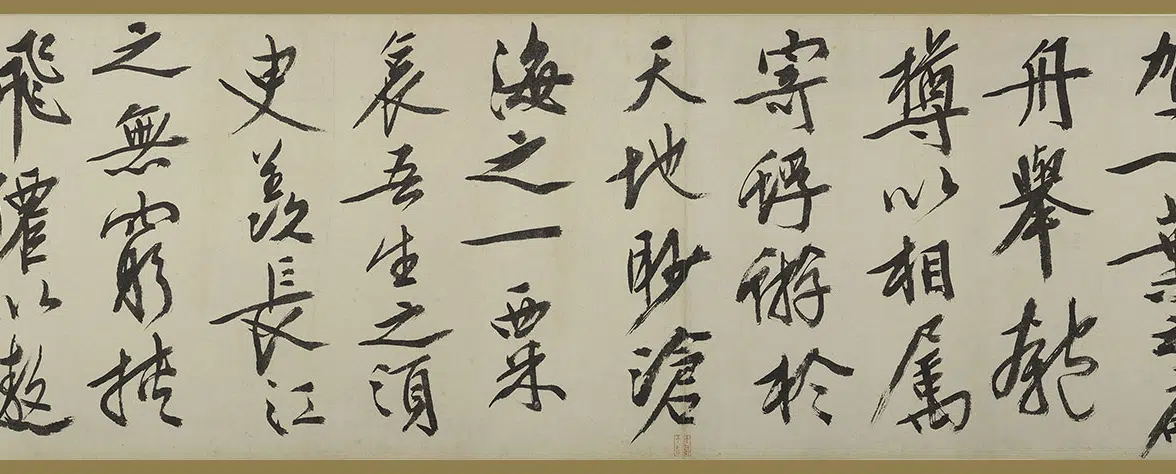 駕一葉之扁
舟舉匏
樽以相属
寄蜉蝣於
天地眇滄
海之一粟
哀吾生之須
臾羨長江
之無窮挟
飛僊以遨